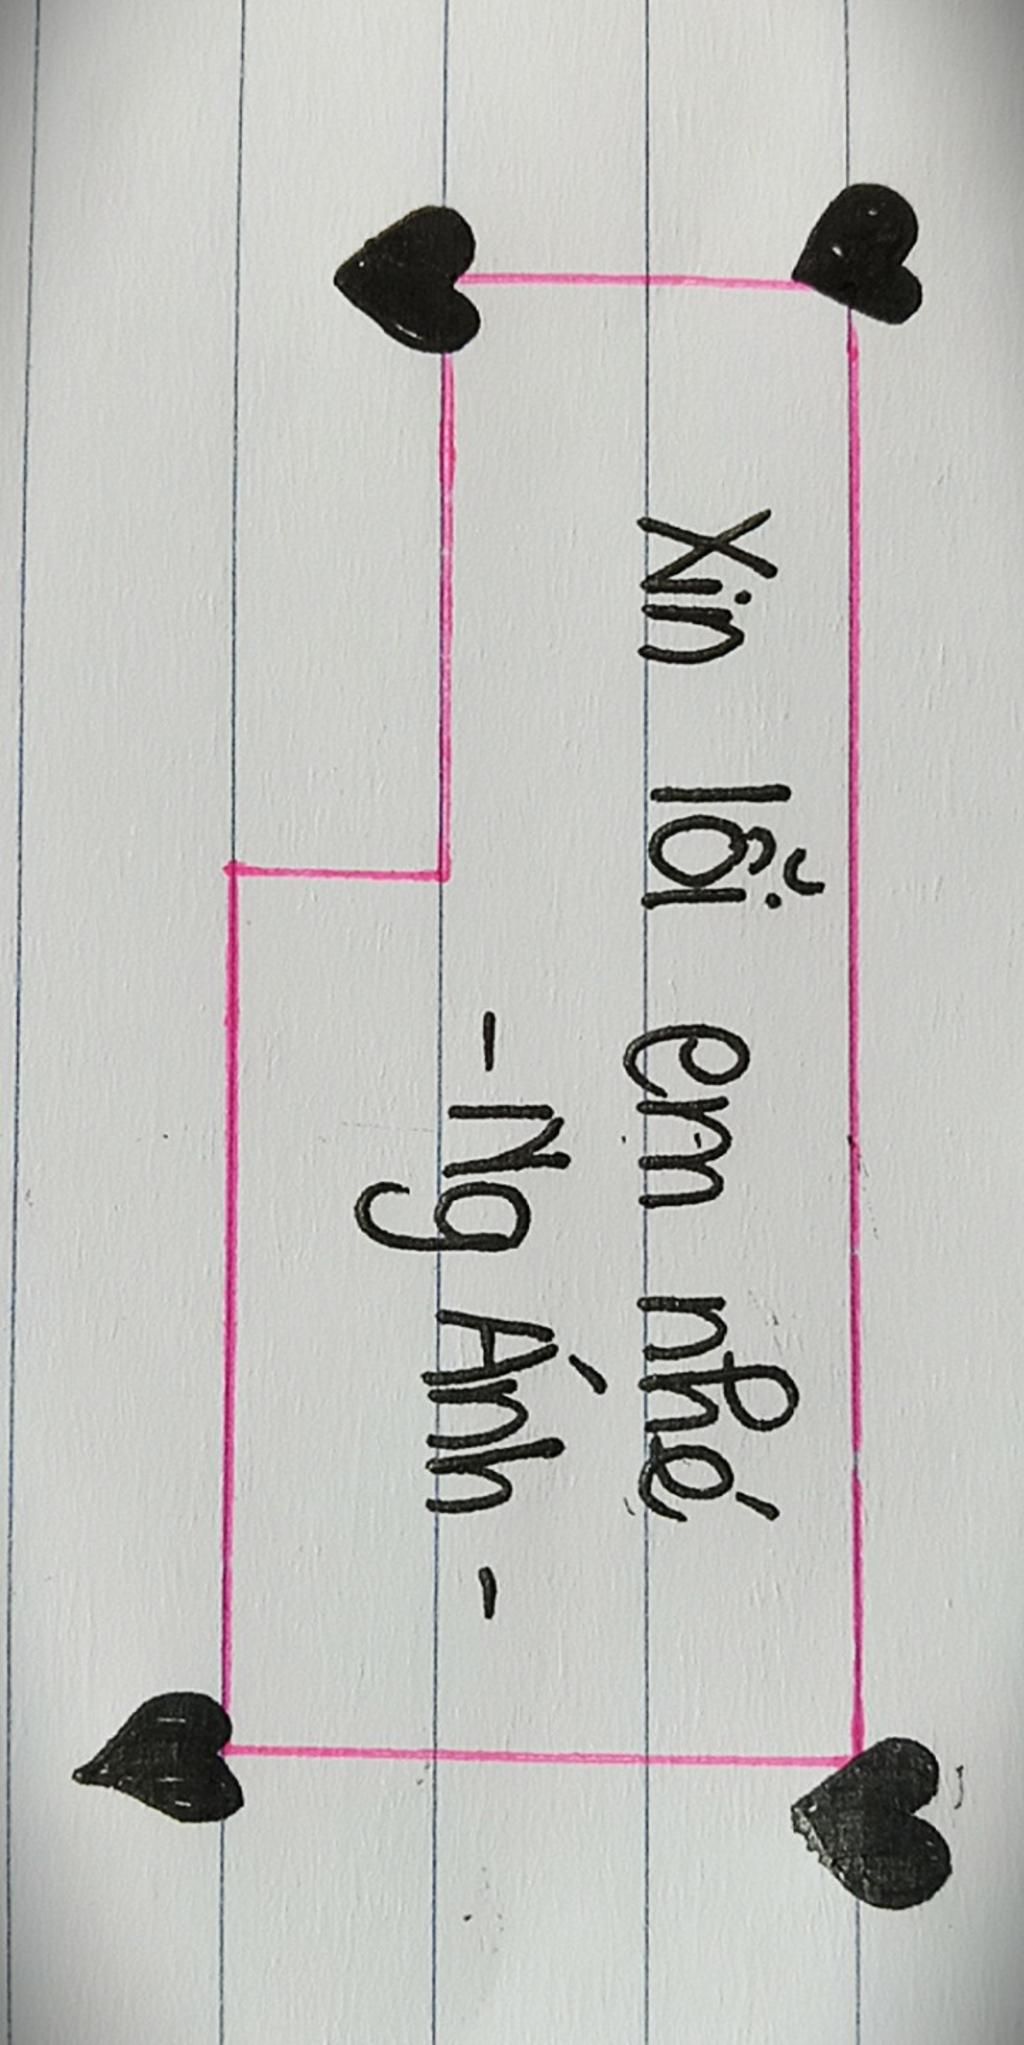 Xin lỗi em nhé
- Ng Ánh -